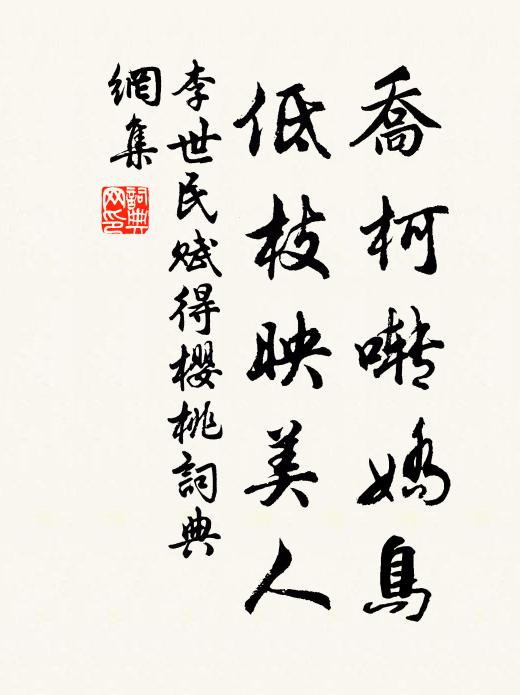 喬柯囀嬌鳥
低枝映美人
李世民賦得櫻桃詞典
網集
詞典網印